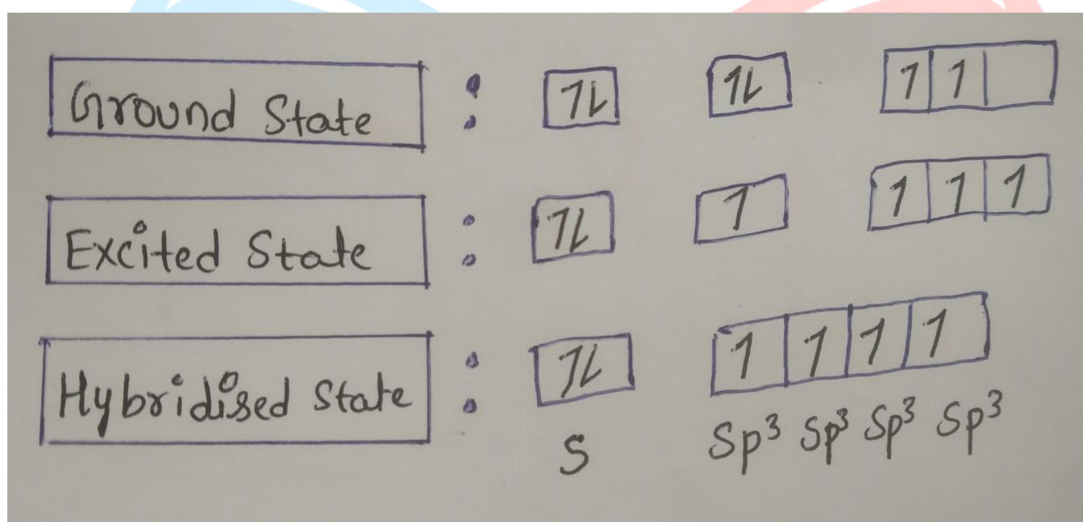 Ground State : 1L 1L 1 1
Excited State : 1L 1 1 1 1
Hybridised State : 1L 1 1 1 1
S Sp³ Sp³ Sp³ Sp³